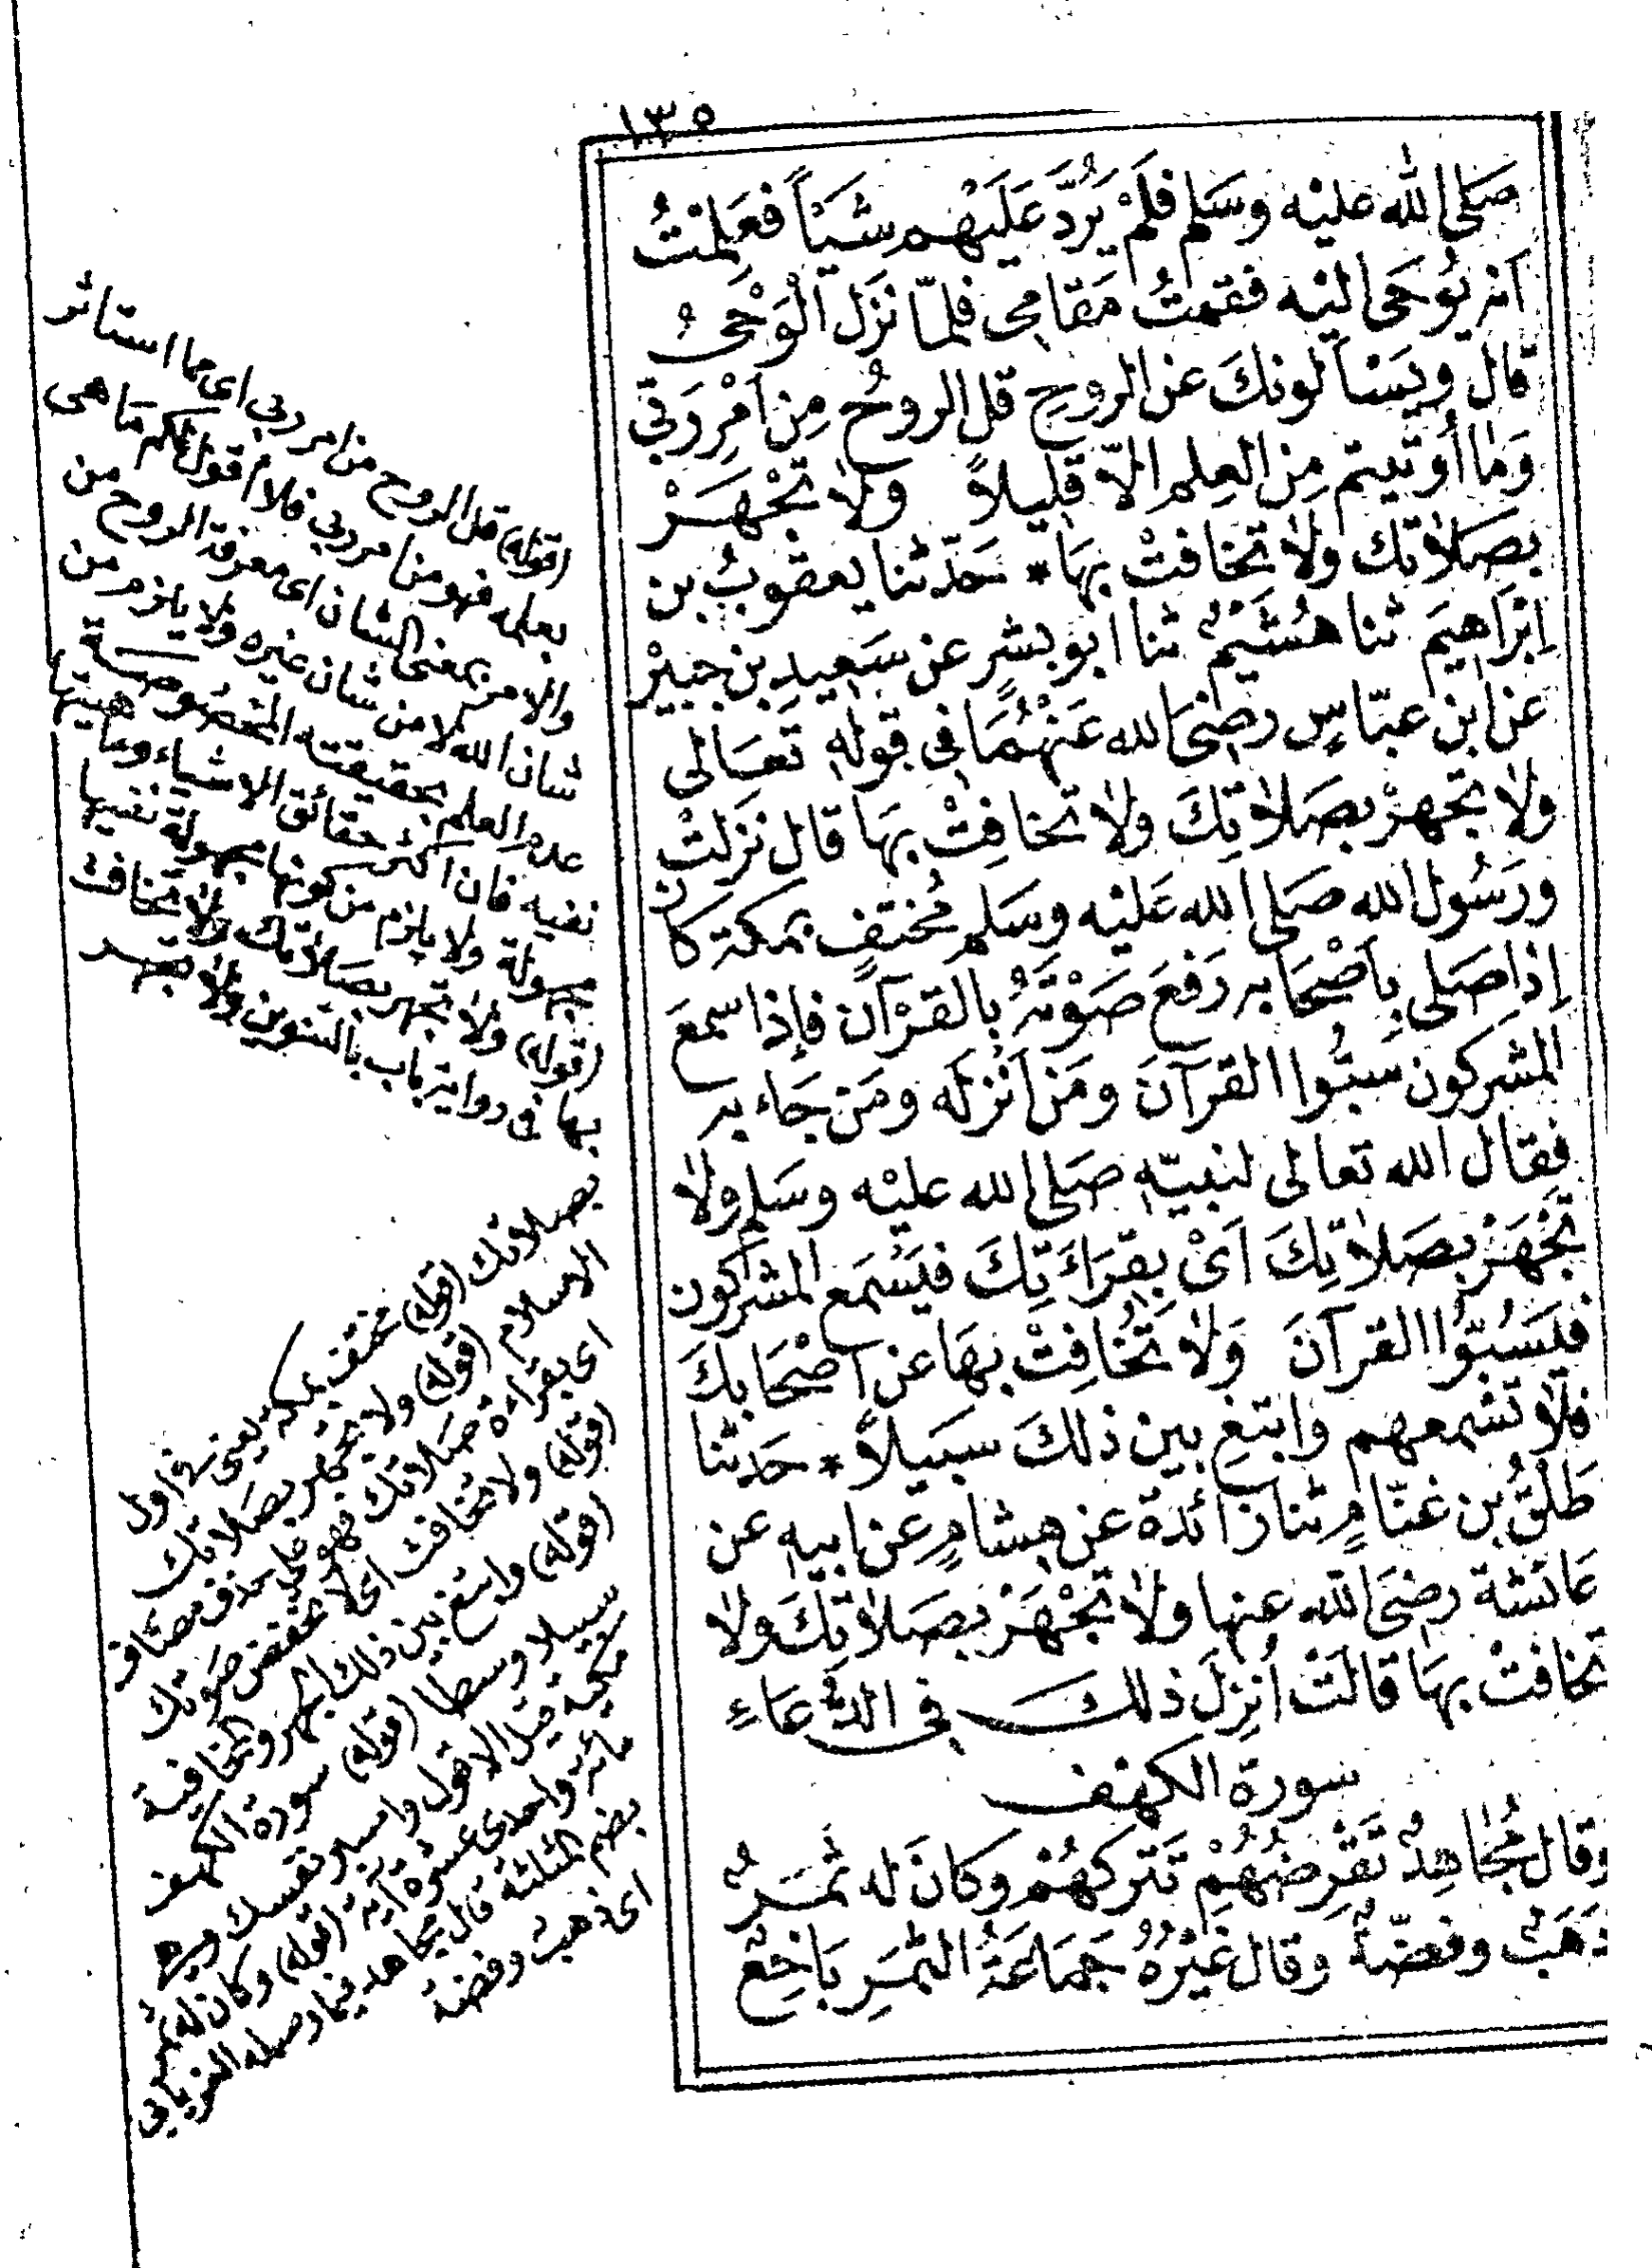 ١٣٥
صَلى الله عليْه وسَلم فلَمْ يَرُدَّ عَلَيْهم شَيْأً فَعَلِمْتُ
اَنه يُوحَى اليْه فقمتُ مَقامِى فلمّا نَزَل الْوَحْىُ
قال ويَسْاَلونكَ عن الروحِ قل الروُح مِن اَمْرِ رَبّى
وَمٰا أُوتيتم مِن العِلمِ الاّ قَلِيلاً وَلاٰ تَجْهَرْ
بصَلاٰتك ولاٰ تخافتْ بهَا * حَدّثنا يعقوبُ بن
اِبْرَاهِيمَ ثنا هُشَيْمٌ ثنا ابو بشرٍ عن سَعِيدِ بن جبيْر
عن ابن عبّاسٍ رضىَ الله عَنْهُمَا فى قولهِ تَعَالى
ولاٰ تجهرْ بصَلاٰتِكَ ولاٰ تخافِتْ بهَا قال نَزَلتْ
ورَسُول الله صَلى الله عَليْه وسَلم مُختفٍ بمكة كان
اِذا صَلى بِاَصْحَابه رَفعَ صَوْتَهُ بالقرْآن فإذا سمعَ
المشركون سبُّوا القرآنَ ومَن اَنْزلَه ومَن جَاء به
فقال الله تعالى لنبيّهِ صَلى الله عليْه وسَلم ولاٰ
تَجْهَرْ بصَلاٰتِكَ اَىْ بِقِرَاءَتِكَ فيَسْمَع المشركون
فيَسُبّوُا القرآنَ وَلاٰ تُخافِتْ بهَا عن اَصْحَابكَ
فلاٰ تُسْمعهم وابتغِ بين ذلكَ سبيلاً * حَدثنا
طَلْقُ بن غنّامٍ ثنا زائدة عن هشامٍ عن ابيهِ عن
عَائشة رضىَ الله عنها ولاٰ تَجْهَرْ بصَلاٰتِكَ ولاٰ
تخافتْ بهَا قالتْ اُنزِلَ ذلك فى الدُّعَاءِ
سورة الكهف
وقال مُجاهِدٌ تَقْرِضُهُمْ تَتركهُمْ وكانَ له ثُمُرٌ
ذَهَبٌ وفضّةٌ وَقال غَيْرُهُ جَمَاعَةُ الثمَرِ بَاخِعٌ
(قوله) قل الروح من امر ربى اى مما استاثر
بعلمه فهو من امر ربى فلا اقول لكم ما هى
والامر بمعنى الشان اى معرفة الروح من
شان الله لا من شان غيره ولا يلزم من
عدم العلم بحقيقته المخصوصة
نفيه فان اكثر حقائق الاشياء وماهيتها
مجهولة ولا يلزم من كونها مجهولة نفيها
(قوله) ولا تجهر بصلاتك ولا تخافت
بها فى رواية باب بالتنوين ولا تجهر
بصلاتك (قوله) مختف بمكة يعنى فى اول
الاسلام (قوله) ولا تجهر بصلاتك
اى بقراءة صلاتك فهو على حذف مضاف
(قوله) ولا تخافت اى لا تخفض صوتك
(قوله) وابتغ بين ذلك الجهر والمخافتة
سبيلا وسطا (قوله) سورة الكهف
مكية قيل الا قوله واصبر نفسك وهى
مائة واحدى عشرة آية (قوله) وكان له ثمر
بضم المثلثة قال مجاهد فيما وصله الفريابى
اى ذهب وفضة